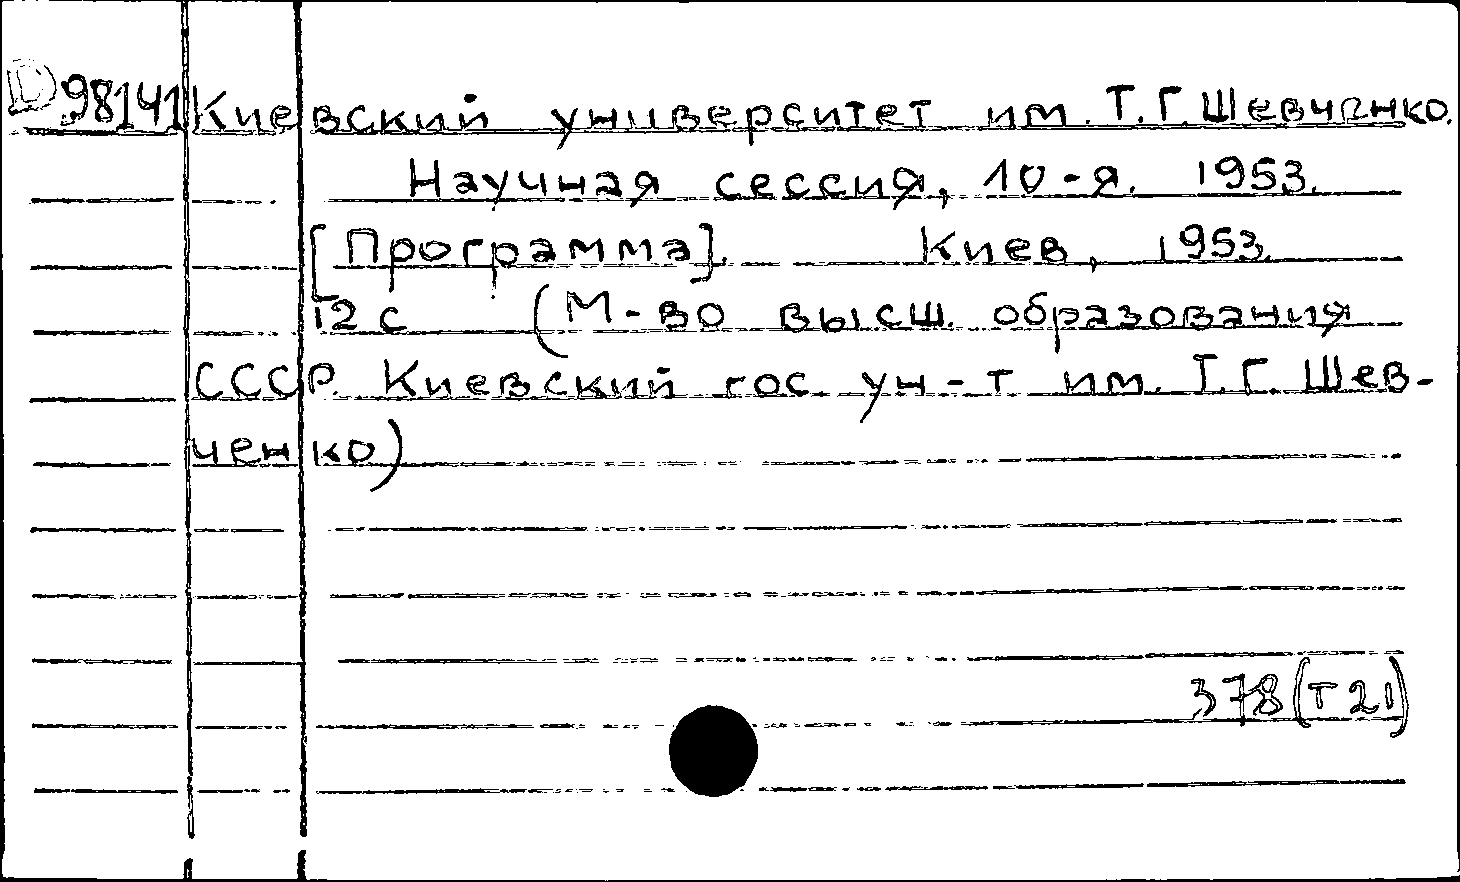 D98141 Киевский университет им. Т.Г. Шевченко.
Научная сессия, 10-я. 1953.
[Программа]. Киев, 1953.
12 с (М-во высш. образования
СССР. Киевский гос. ун-т им. Т.Г. Шев-
ченко)
378(Т21)